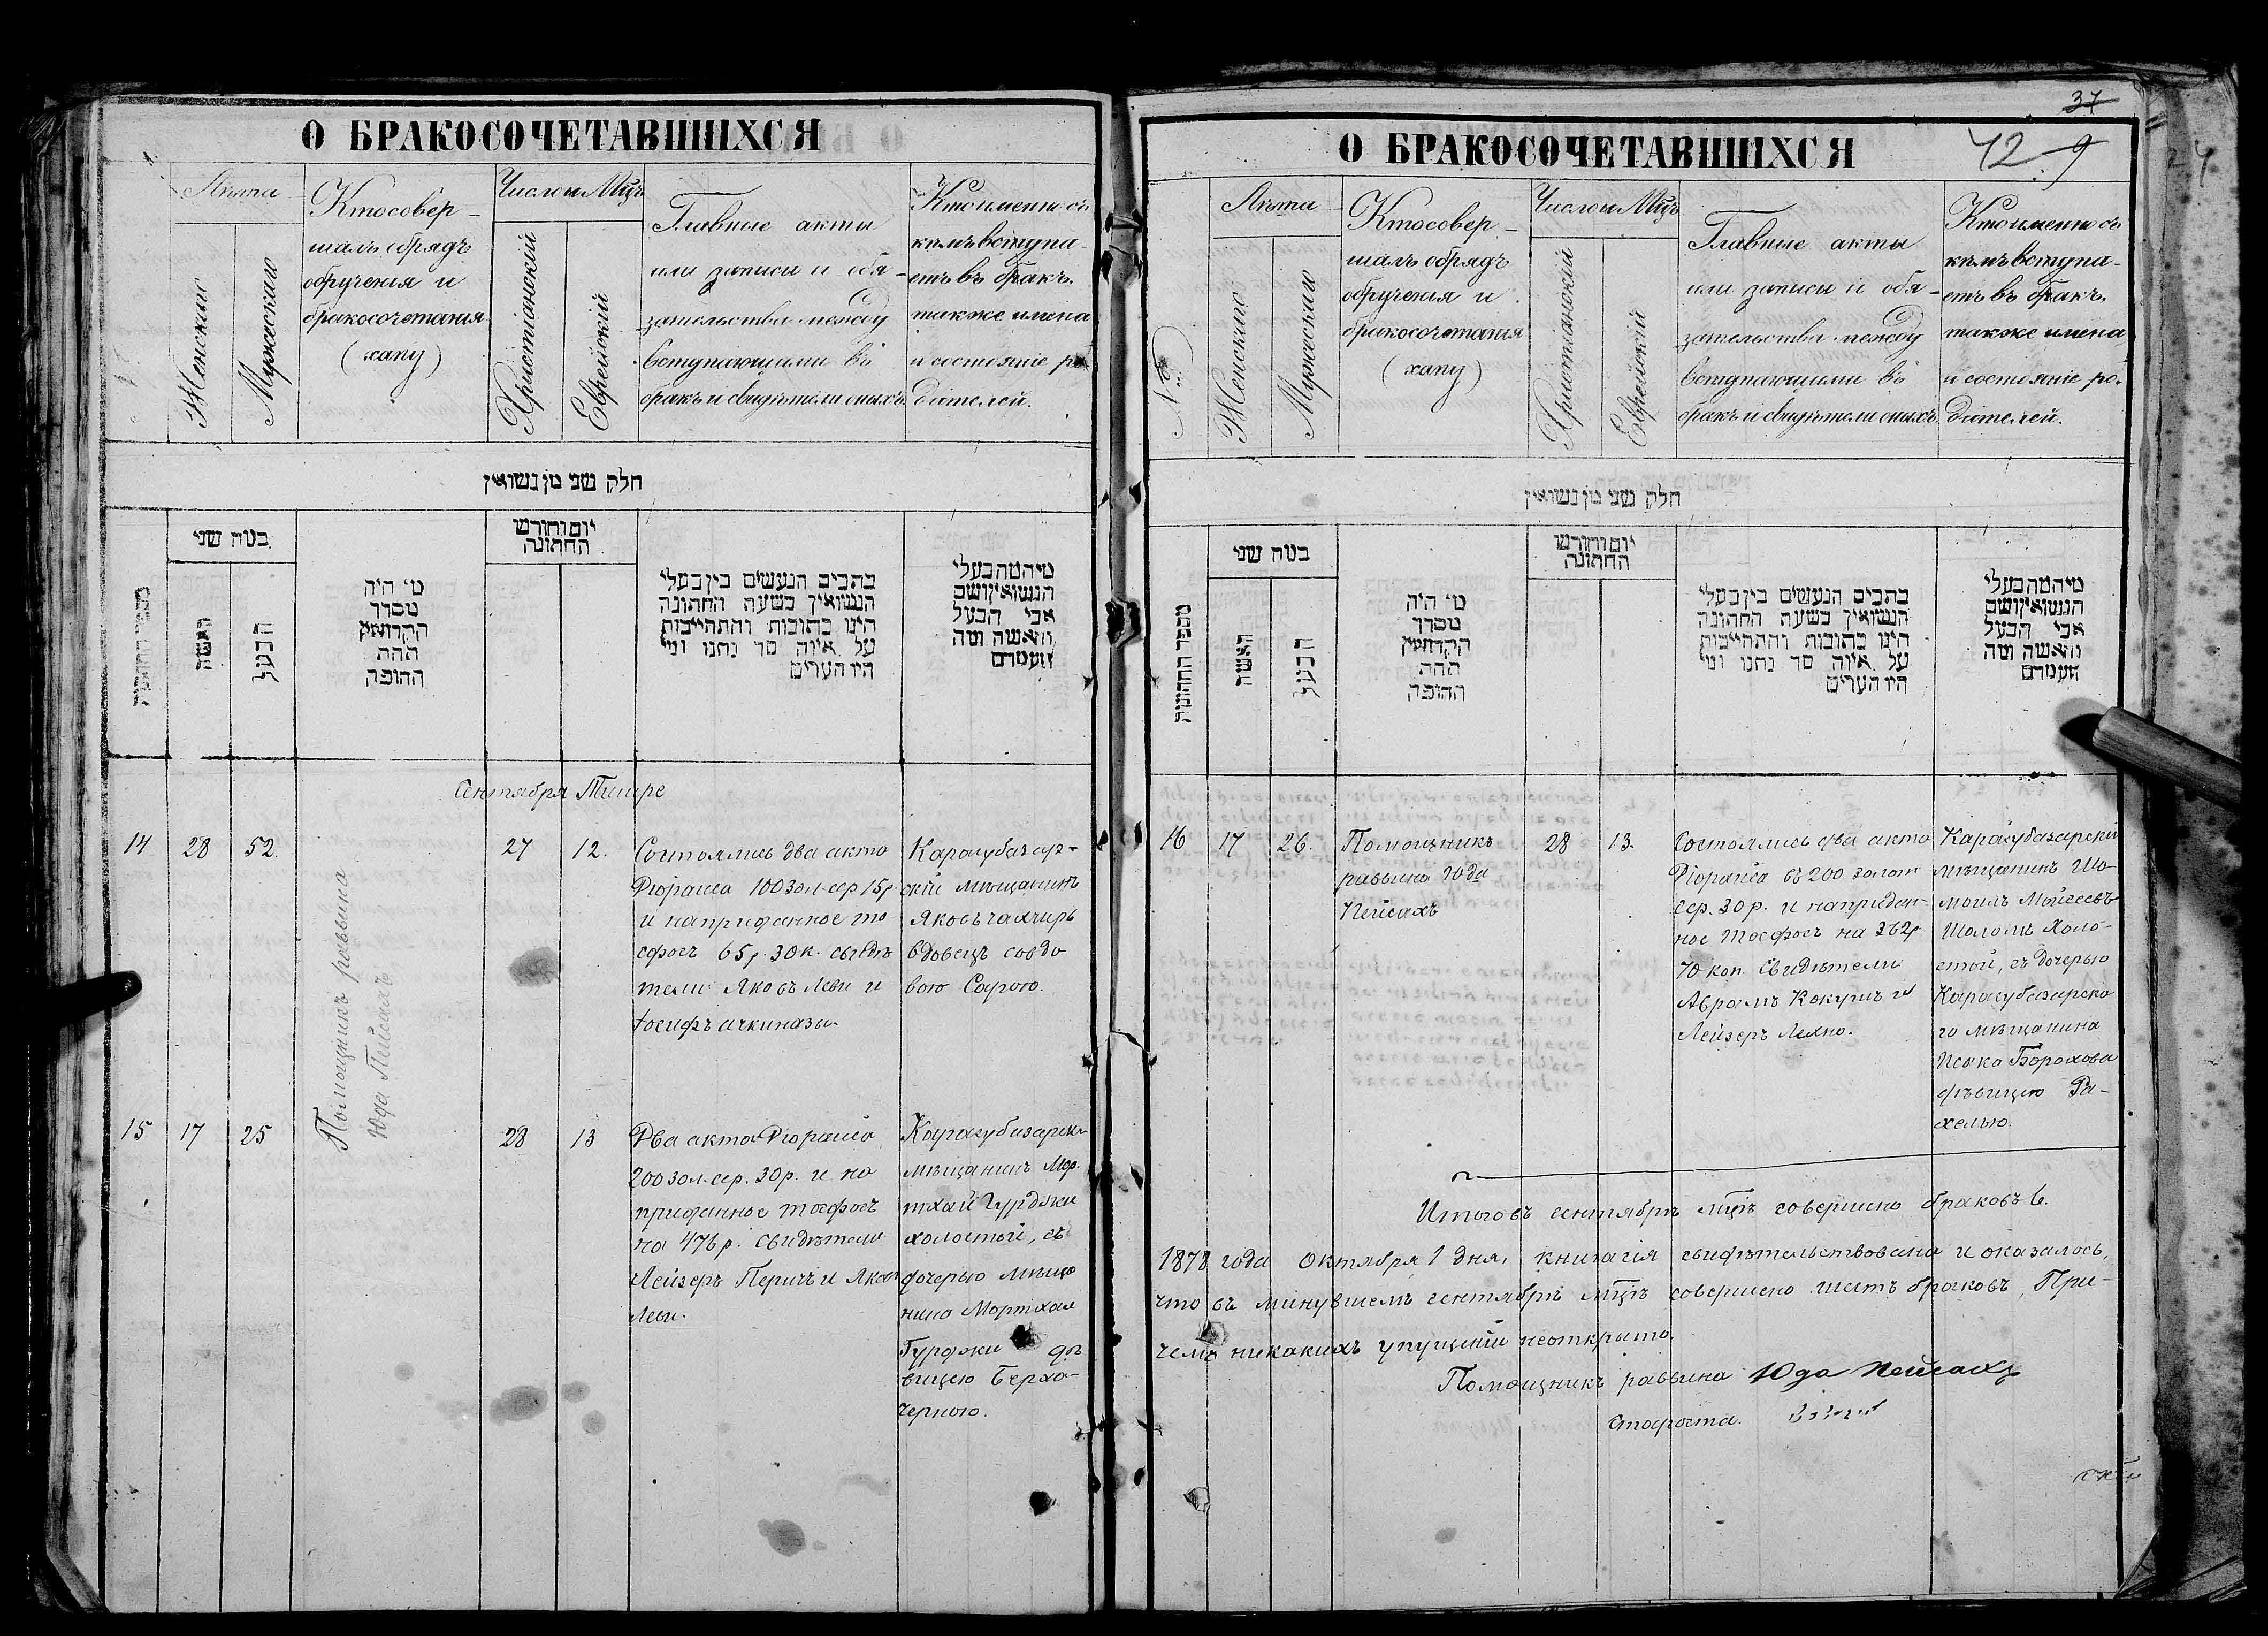 О БРАКОСОЧЕТАВШИХСЯ
Лѣта
Женскаго
Мужескаго
Кто совер-
шалъ обрядъ
обрученія и
бракосочетанія
(хапу)
Число и Мцъ
Христіанскій
Еврейскій
Главные акты
или записи и обя-
зательства между
вступающими въ
бракъ и свидѣтели оныхъ
Кто именно съ
кѣмъ вступа-
етъ въ бракъ.
также имена
и состояніе ро
дителей.
חלק שני מן נשואין
מספר החתונות
כמה שני
האשה
הבעל
מי היה
מסדר
הקדושין
תחת
החופה
יום וחודש
החתונה
כתבים הנעשים בין בעלי
הנשואין בשעה החתונה
היינו כתובות והתחייבות
על איזה סך נתנו ומי
היו העדים
מי המה בעלי
הנשואין ושם
אבי הבעל
והאשה ומה
מעמדם
Сентября Тишре
14 28 52
Помощникъ раввина
Юда Пейсахъ
27 12.
Состоялись два акта
Дюраиса 100 зол. сер 15р
и на приданное то
сфосъ 65р. 30к. свидѣ
тели Яковъ Леви и
Іосифъ ачкинази.
Карасубазар-
скій мѣщанинъ
Яковъ чахчиръ
вдовецъ со вдо
вою Сарою.
15 17 25
28 13
Два акта Дюраиса
200 зол. сер. 30р. и на
приданное тосфосъ
на 476р. свидѣтели
Лейзеръ Перичъ и Яковъ
Леви.
Карасубазарск.
мѣщанинъ Мор.
тхай Гурджи
холостой, съ
дочерью мѣща
нина Мортхая
Гурджи дѣ
вицею Берха-
черною.
37
42 9
О БРАКОСОЧЕТАВШИХСЯ
№
Лѣта
Женскаго
Мужескаго
Кто совер-
шалъ обрядъ
обрученія и
бракосочетанія
(хапу)
Число и Мцъ
Христіанскій
Еврейскій
Главные акты
или записи и обя-
зательства между
вступающими въ
бракъ и свидѣтели оныхъ
Кто именно съ
кѣмъ вступа-
етъ въ бракъ.
также имена
и состояніе ро-
дителей.
חלק שני מן נשואין
מספר החתונות
כמה שני
האשה
הבעל
מי היה
מסדר
הקדושין
תחת
החופה
יום וחודש
החתונה
כתבים הנעשים בין בעלי
הנשואין בשעה החתונה
היינו כתובות והתחייבות
על איזה סך נתנו ומי
היו העדים
מי המה בעלי
הנשואין ושם
אבי הבעל
והאשה ומה
מעמדם
16 17 26.
Помощникъ
раввина Юда
Пейсахъ
28 13.
Состоялись два акта
Дюраиса въ 200 золот
сер. 30р. и на придан-
ное тосфосъ на 362р
70 коп. Свидѣтели
Аврамъ Кокушъ и
Лейзеръ Лехно.
Карасубазарскій
мѣщанинъ Шо-
моилъ Мойсеевъ
Шоломъ Холо-
стой, съ дочерью
Карасубазарска
го мѣщанина
Исака Борохова
дѣвицею Ра-
хелью.
Итого въ сентябрѣ мцѣ совершено браковъ 6.
1878 года Октября 1 дня, книга сія свидѣтельствована и оказалось,
что въ минувшемъ сентябрѣ мцѣ совершено шесть браковъ, При-
чемъ никакихъ упущеній не открыто.
Помощникъ раввина Юда Пейсахъ
Староста